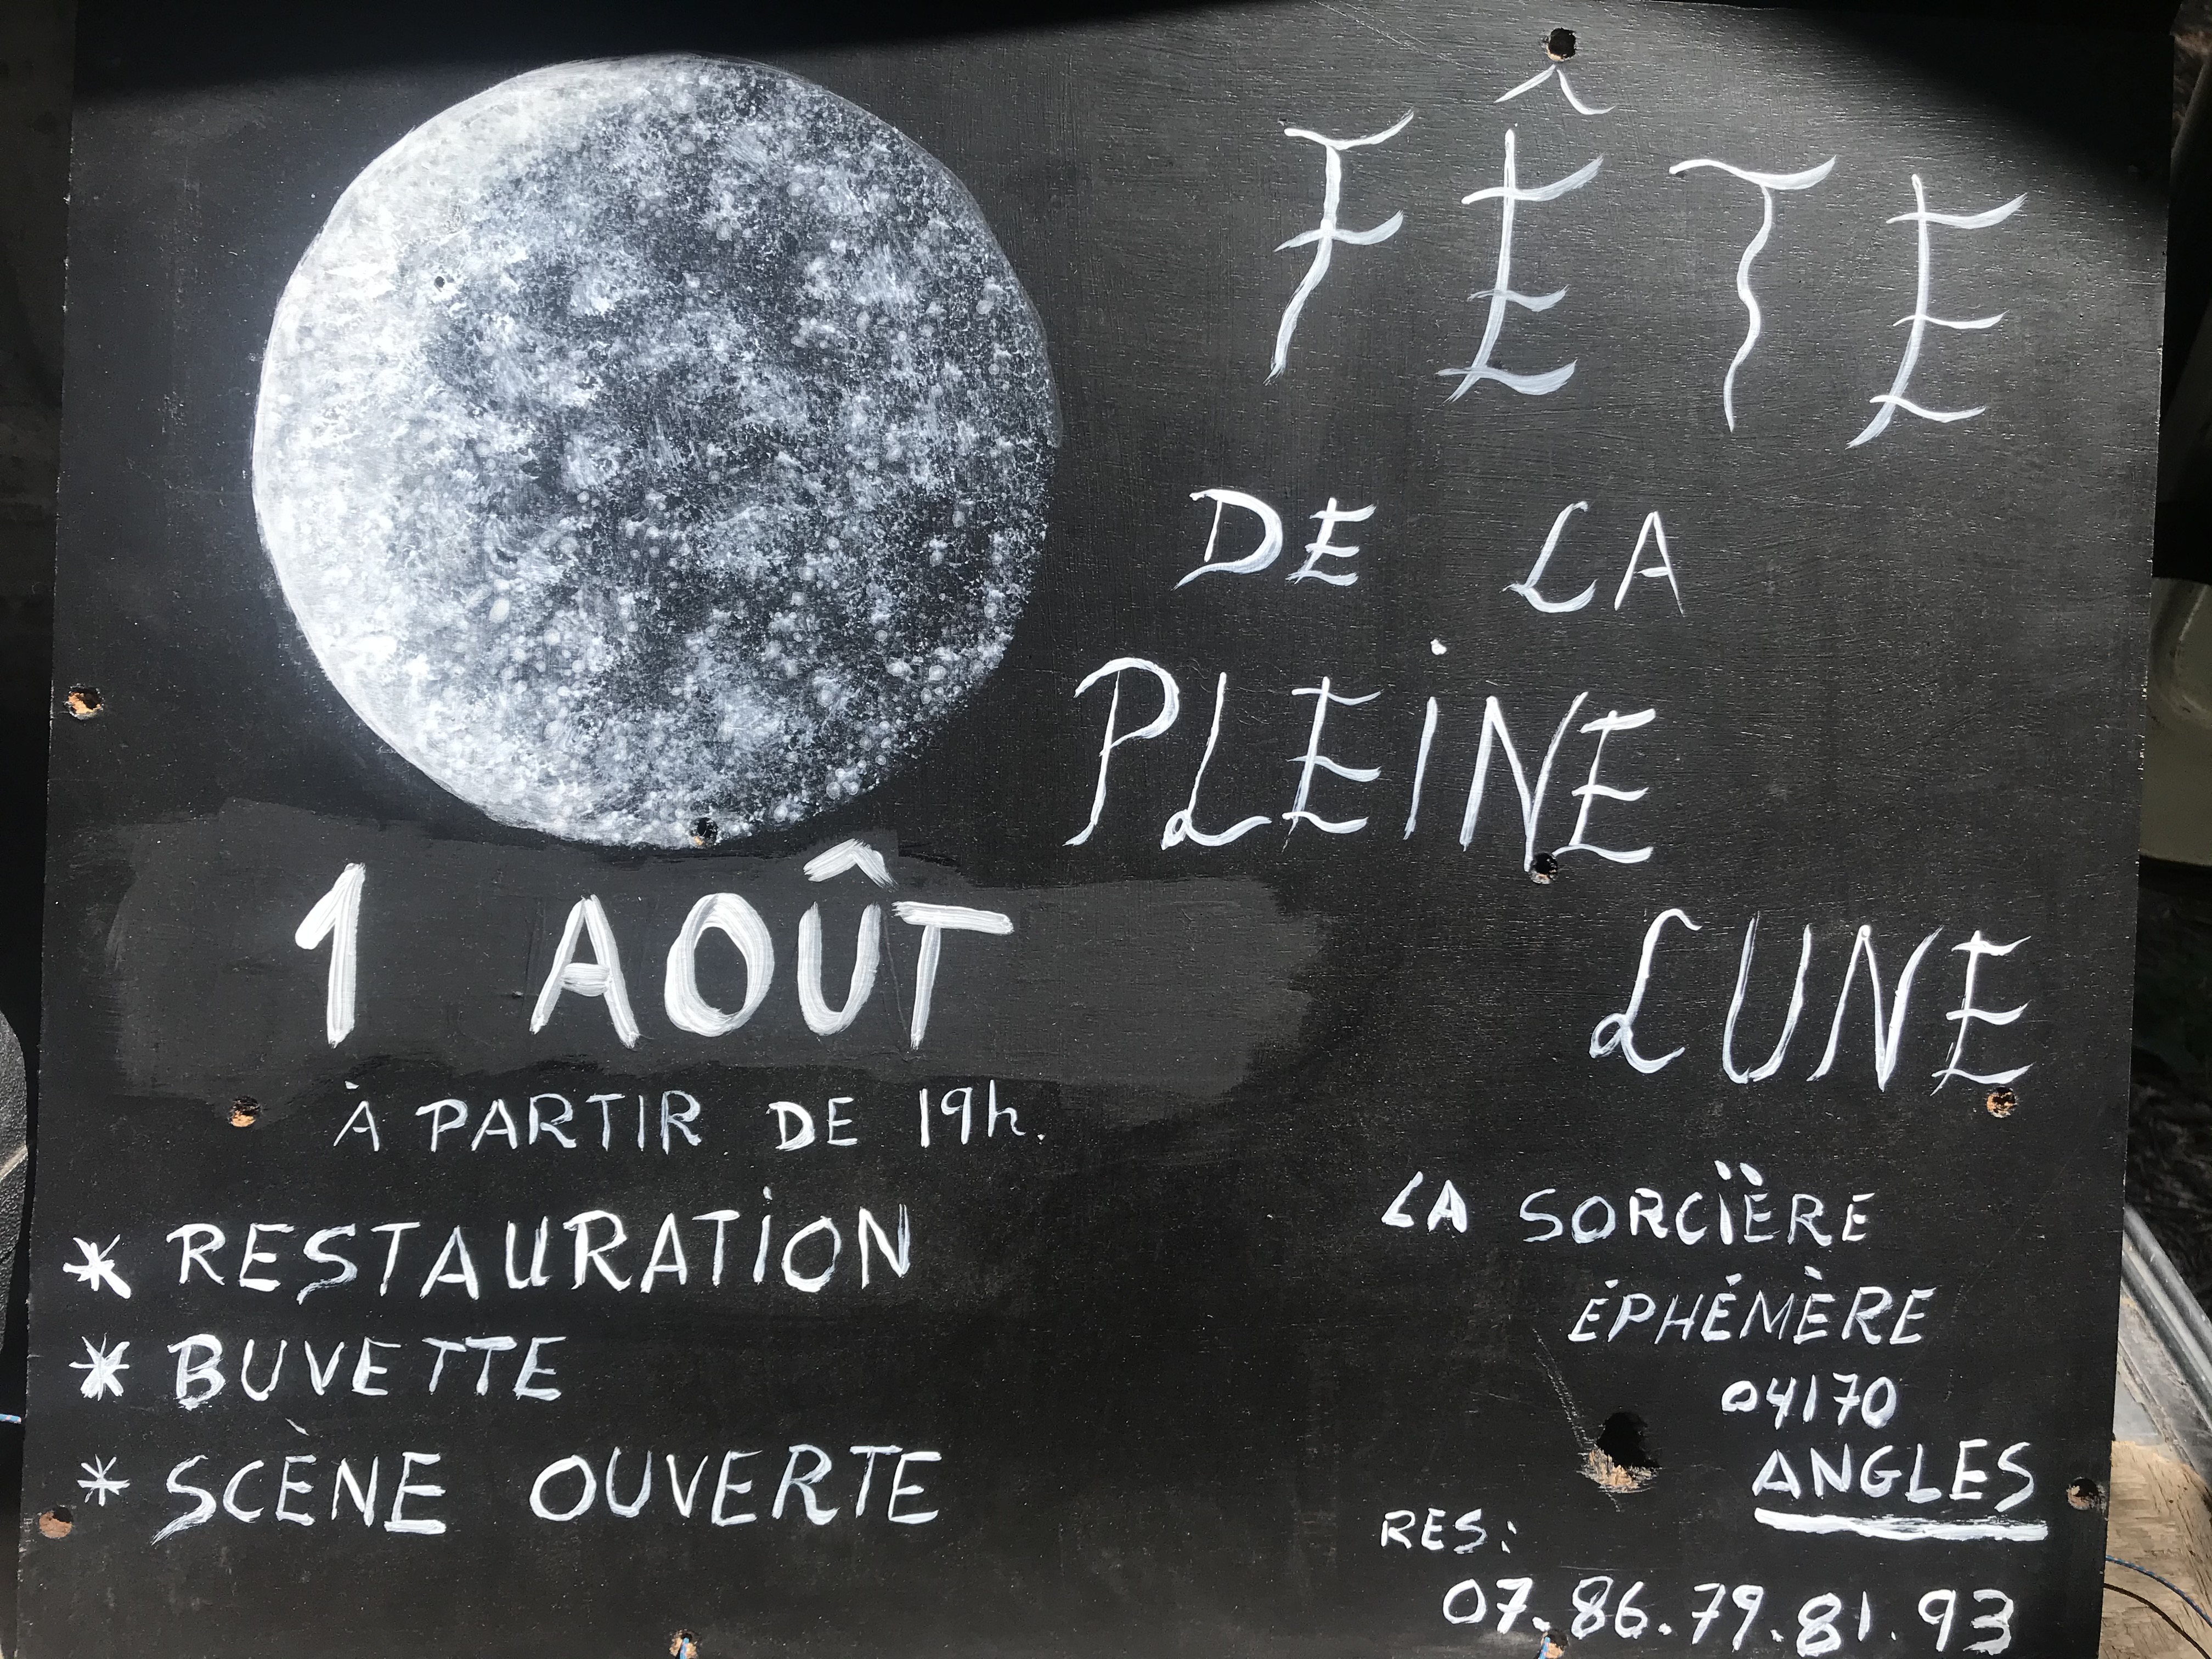 FÊTE
DE LA
PLEINE
LUNE
1 AOÛT
À PARTIR DE 19h.
* RESTAURATION
* BUVETTE
* SCÈNE OUVERTE
LA SORCIÈRE
ÉPHÉMÈRE
04170
ANGLES
RES:
07.86.79.81.93